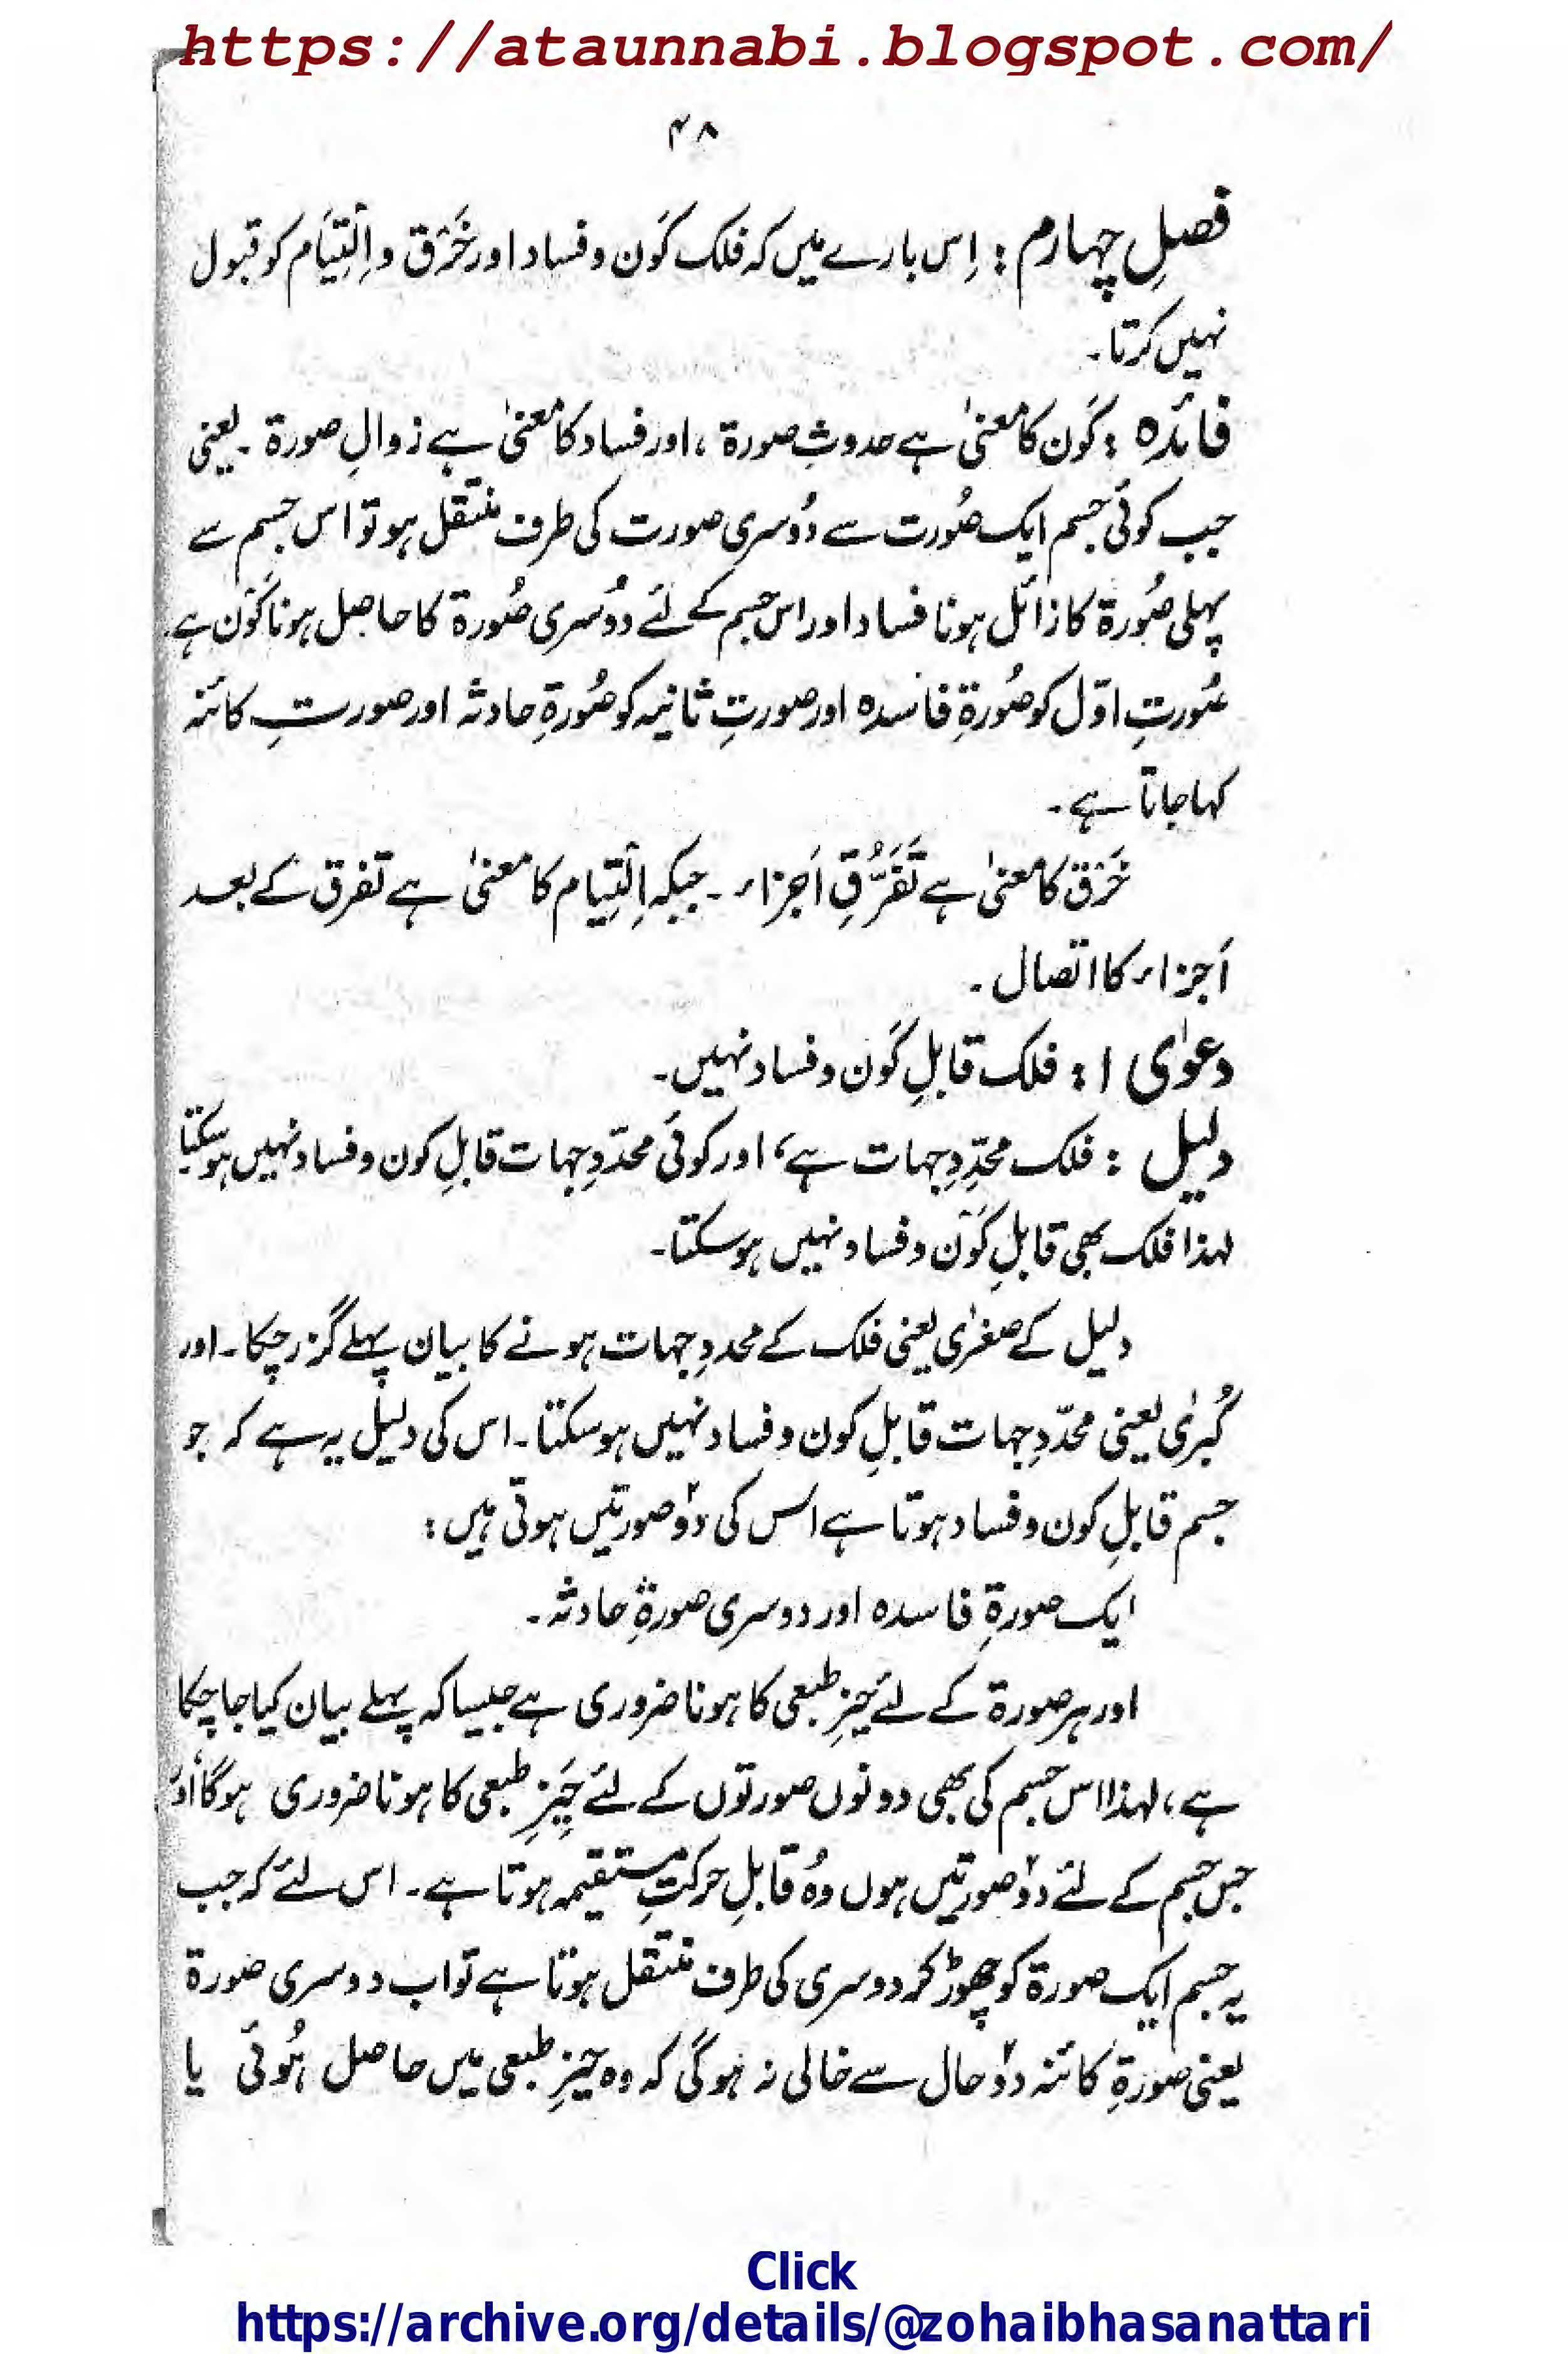 https://ataunnabi.blogspot.com/
۴۸
فصلِ چہارم : اِس بارے میں کہ فلک کَون و فساد اور خَرْق و اِلْتِیَام کو قبول
نہیں کرتا۔
فائدہ : کَون کا معنیٰ ہے حدوثِ صورة ، اور فساد کا معنیٰ ہے زوالِ صورة ۔ یعنی
جب کوئی جسم ایک صُورت سے دُوسری صورت کی طرف منتقل ہو تو اس جسم سے
پہلی صُورة کا زائل ہونا فساد اور اس جسم کے لئے دُوسری صُورة کا حاصل ہونا کَوْن ہے۔
صُورتِ اوّل کو صُورةِ فاسدہ اور صورتِ ثانیہ کو صُورةِ حادثہ اور صورتِ کائنہ
کہا جاتا ہے ۔
خَرْق کا معنیٰ ہے تَفَرُّقِ اَجزاء ۔ جبکہ اِلْتِیام کا معنیٰ ہے تفرق کے بعد
اَجزاء کا اتصال ۔
دعوٰی ۱ : فلک قابلِ کَون و فساد نہیں۔
دلیل : فلک محدِّدِ جہات ہے، اور کوئی محدّدِ جہات قابلِ کون و فساد نہیں ہوسکتا
لہذا فلک بھی قابلِ کَوْن و فساد نہیں ہوسکتا۔
دلیل کے صغرٰی یعنی فلک کے محددِ جہات ہونے کا بیان پہلے گزر چکا ۔ اور
کُبرٰی یعنی محدّدِ جہات قابلِ کون و فساد نہیں ہوسکتا ۔ اس کی دلیل یہ ہے کہ جو
جسم قابلِ کون و فساد ہوتا ہے اس کی دوؔ صورتیں ہوتی ہیں :
ایک صورةِ فاسدہ اور دوسری صورةِ حادثہ ۔
اور ہر صورة کے لئے حیّزِ طبعی کا ہونا ضروری ہے جیسا کہ پہلے بیان کیا جا چکا
ہے ، لہذا اس جسم کی بھی دونوں صورتوں کے لئے حَیّزِ طبعی کا ہونا ضروری ہوگا اور
جس جسم کے لئے دوؔ صورتیں ہوں وُہ قابلِ حرکتِ مستقیمہ ہوتا ہے ۔ اس لئے کہ جب
یہ جسم ایک صورة کو چھوڑ کر دوسری کی طرف منتقل ہوتا ہے تو اب دوسری صورة
یعنی صورةِ کائنہ دوؔ حال سے خالی نہ ہوگی کہ وہ حیّزِ طبعی میں حاصل ہُوئی یا
Click
https://archive.org/details/@zohaibhasanattari